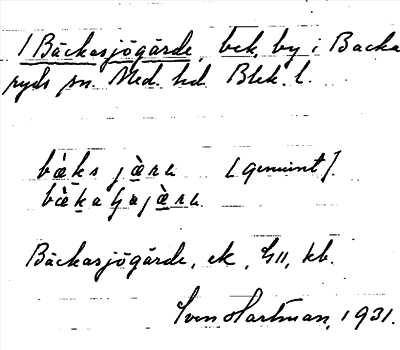 1 Bäckasjögärde, bek. by i Backa
ryds sn. Med. hd. Blek. l.
bæ̀ks jæ̀ra [genuint].
bæ̀ka ɧøjæ̀ra
Bäckasjögärde, ek, GII, kb.
Sven Hartman, 1931.